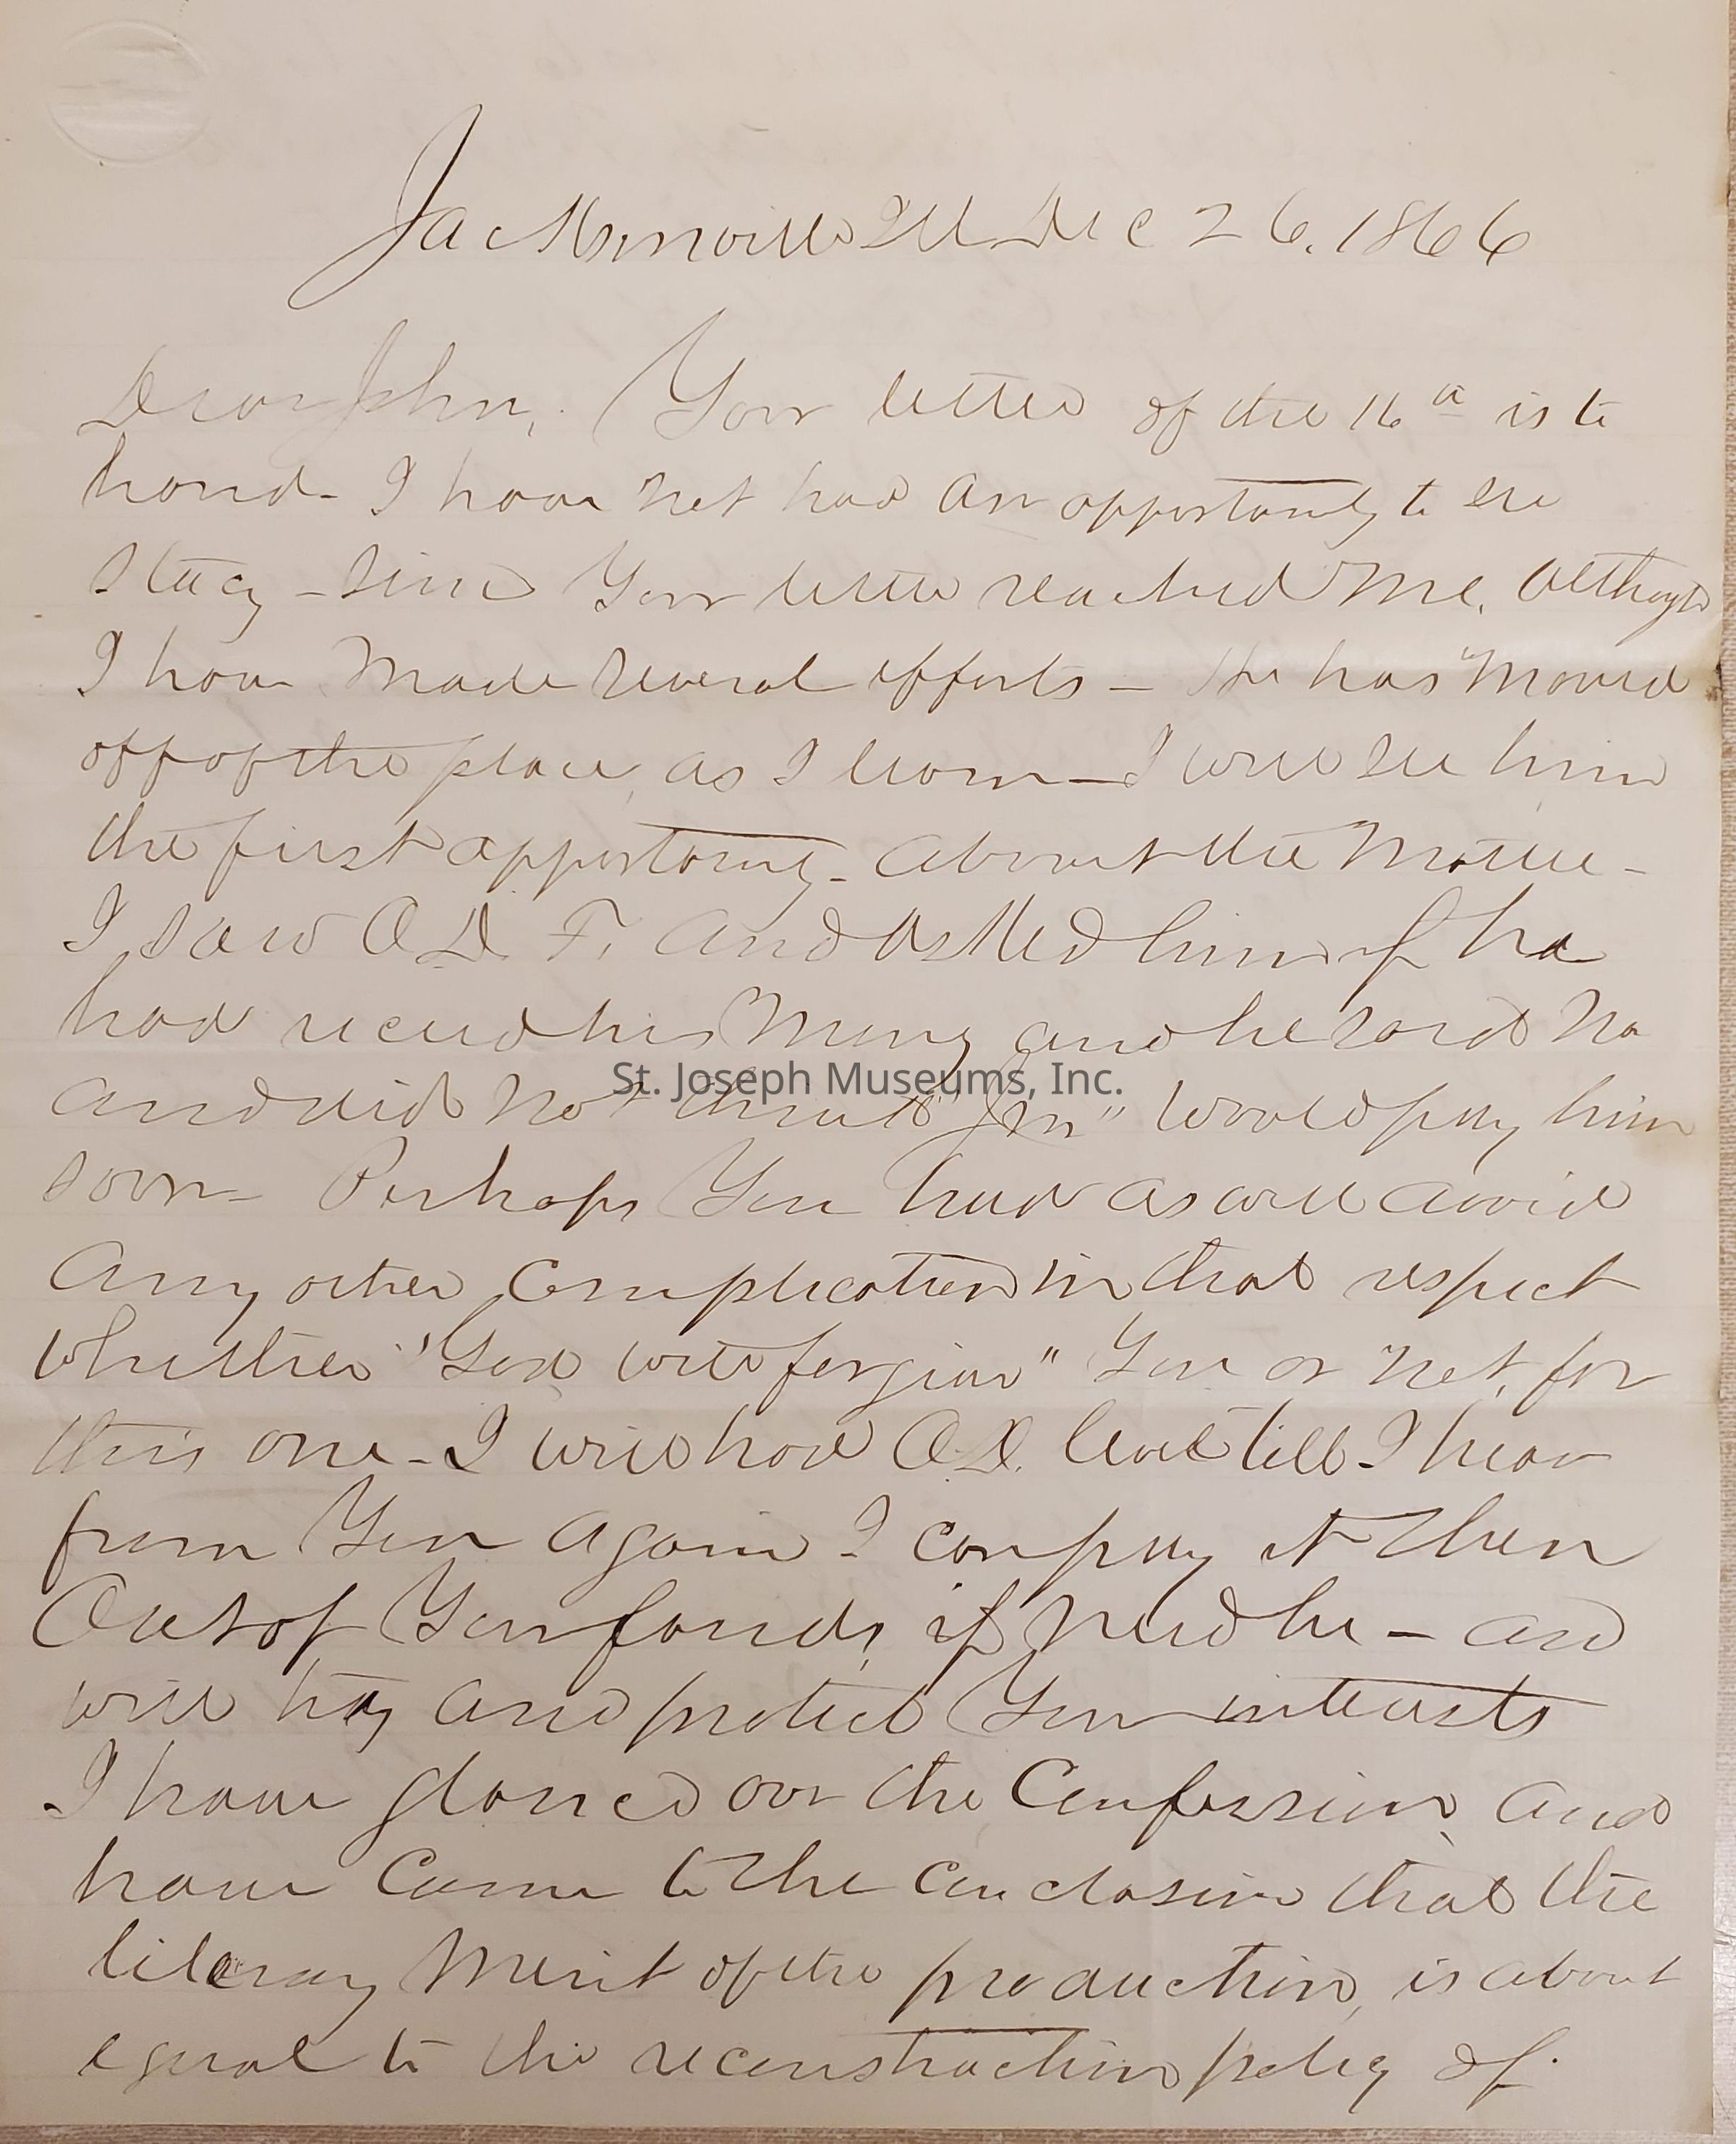 Jacksonville Ill Dec 26. 1866
Dear John, Your letter of the 16th is to
hand - I have not had an opportunity to see
Stacy - since Your letter reached me, although
I have made several efforts - He has moved
off of the place, as I learn - I will see him
the first opportunity - about the matter -
I saw O D F. and asked him if he
had recd his money and he said no
and did not think "Jm" would pay him
soon - Perhaps You had as well avoid
any other complication in that respect
whether "God will forgive" You or not, for
this one - I will hold O.D. level till I hear
from You again I can pay it then
Out of Your funds, if need be - and
will try and protect Your interests
I have glanced over the Confession, and
have came to the conclusion that the
literary merit of the production, is about
equal to the reconstruction policy of
St. Joseph Museums, Inc.